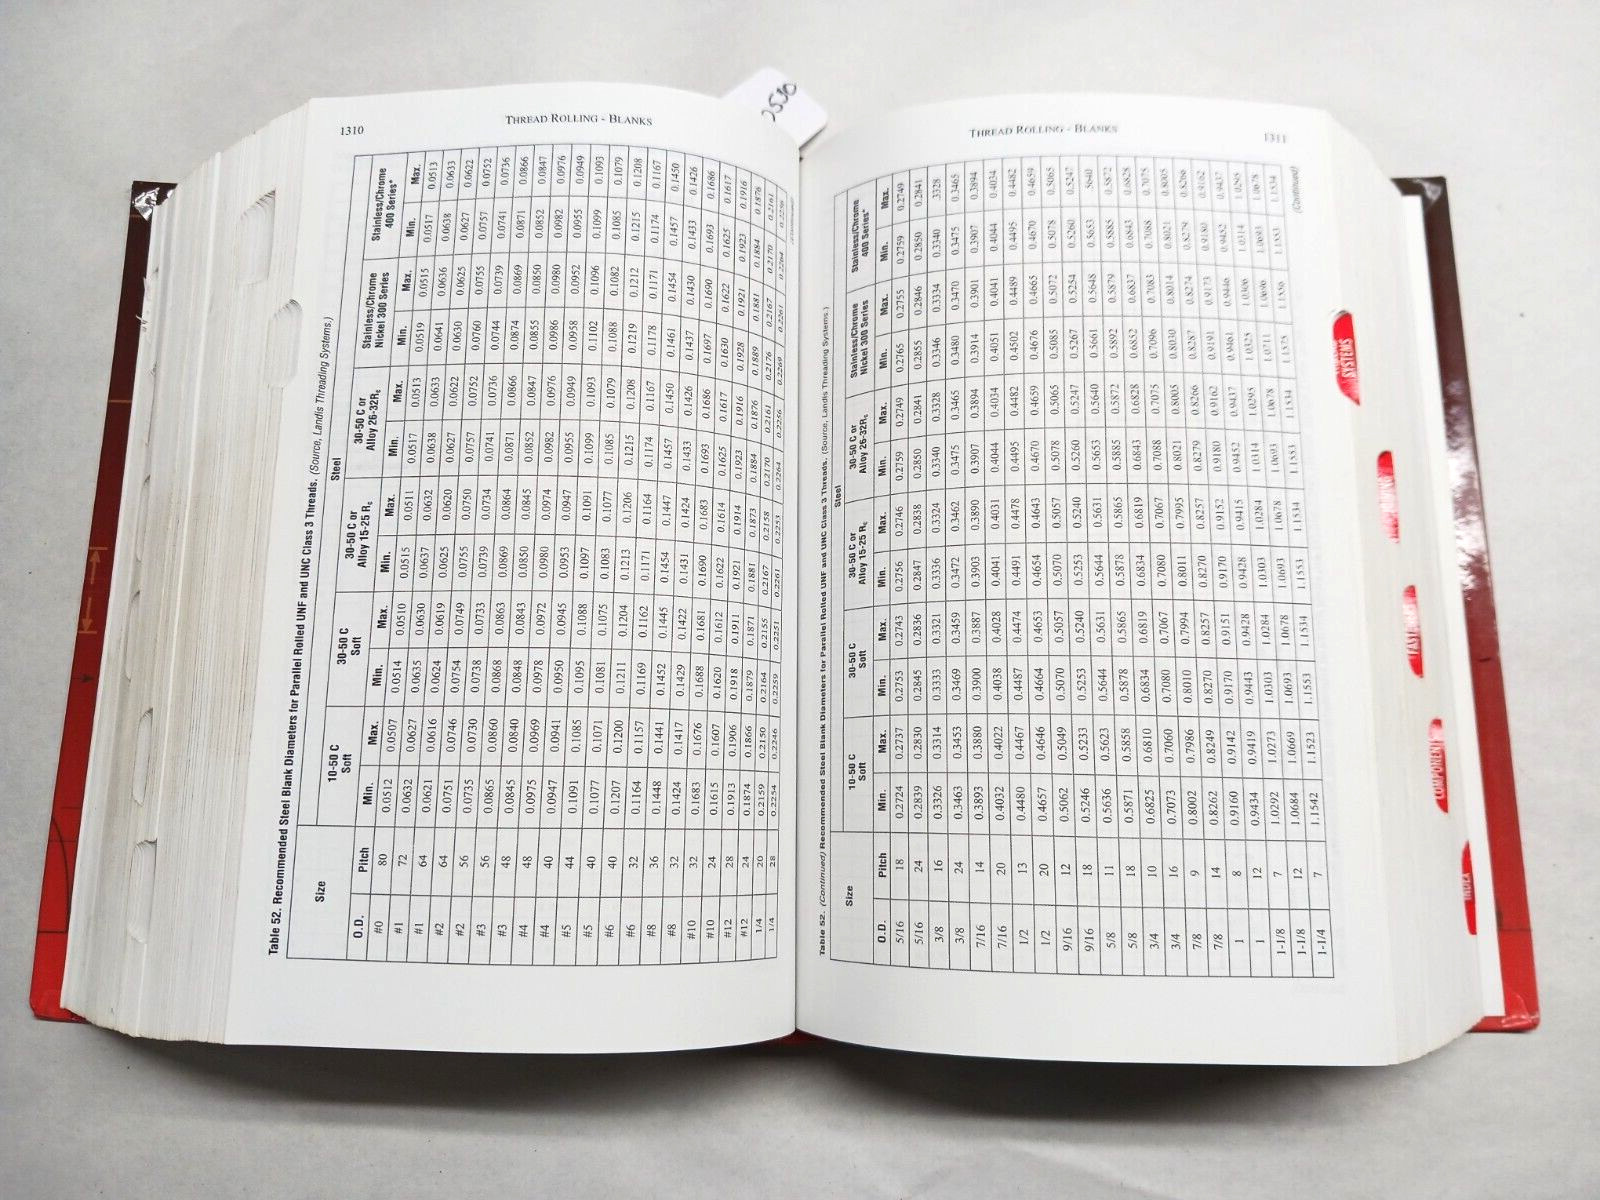 1310
THREAD ROLLING - BLANKS
Table 52. Recommended Steel Blank Diameters for Parallel Rolled UNF and UNC Class 3 Threads. (Source, Landis Threading Systems.)
Size Steel
10-50 C Soft 30-50 C Soft 30-50 C or Alloy 15-25 Rc 30-50 C or Alloy 26-32Rc Stainless/Chrome Nickel 300 Series Stainless/Chrome 400 Series*
O.D. Pitch Min. Max. Min. Max. Min. Max. Min. Max. Min. Max. Min. Max.
#0 80 0.0512 0.0507 0.0514 0.0510 0.0515 0.0511 0.0517 0.0513 0.0519 0.0515 0.0517 0.0513
#1 72 0.0632 0.0627 0.0635 0.0630 0.0637 0.0632 0.0638 0.0633 0.0641 0.0636 0.0638 0.0633
#1 64 0.0621 0.0616 0.0624 0.0619 0.0625 0.0620 0.0627 0.0622 0.0630 0.0625 0.0627 0.0622
#2 64 0.0751 0.0746 0.0754 0.0749 0.0755 0.0750 0.0757 0.0752 0.0760 0.0755 0.0757 0.0752
#2 56 0.0735 0.0730 0.0738 0.0733 0.0739 0.0734 0.0741 0.0736 0.0744 0.0739 0.0741 0.0736
#3 56 0.0865 0.0860 0.0868 0.0863 0.0869 0.0864 0.0871 0.0866 0.0874 0.0869 0.0871 0.0866
#3 48 0.0845 0.0840 0.0848 0.0843 0.0850 0.0845 0.0852 0.0847 0.0855 0.0850 0.0852 0.0847
#4 48 0.0975 0.0969 0.0978 0.0972 0.0980 0.0974 0.0982 0.0976 0.0986 0.0980 0.0982 0.0976
#4 40 0.0947 0.0941 0.0950 0.0945 0.0953 0.0947 0.0955 0.0949 0.0958 0.0952 0.0955 0.0949
#5 44 0.1091 0.1085 0.1095 0.1088 0.1097 0.1091 0.1099 0.1093 0.1102 0.1096 0.1099 0.1093
#5 40 0.1077 0.1071 0.1081 0.1075 0.1083 0.1077 0.1085 0.1079 0.1088 0.1082 0.1085 0.1079
#6 40 0.1207 0.1200 0.1211 0.1204 0.1213 0.1206 0.1215 0.1208 0.1219 0.1212 0.1215 0.1208
#6 32 0.1164 0.1157 0.1169 0.1162 0.1171 0.1164 0.1174 0.1167 0.1178 0.1171 0.1174 0.1167
#8 36 0.1448 0.1441 0.1452 0.1445 0.1454 0.1447 0.1457 0.1450 0.1461 0.1454 0.1457 0.1450
#8 32 0.1424 0.1417 0.1429 0.1422 0.1431 0.1424 0.1433 0.1426 0.1437 0.1430 0.1433 0.1426
#10 32 0.1683 0.1676 0.1688 0.1681 0.1690 0.1683 0.1693 0.1686 0.1697 0.1690 0.1693 0.1686
#10 24 0.1615 0.1607 0.1620 0.1612 0.1622 0.1614 0.1625 0.1617 0.1630 0.1622 0.1625 0.1617
#12 28 0.1913 0.1906 0.1918 0.1911 0.1921 0.1914 0.1923 0.1916 0.1928 0.1921 0.1923 0.1916
#12 24 0.1874 0.1866 0.1879 0.1871 0.1881 0.1873 0.1884 0.1876 0.1889 0.1881 0.1884 0.1876
1/4 20 0.2159 0.2150 0.2164 0.2155 0.2167 0.2158 0.2170 0.2161 0.2176 0.2167 0.2170 0.2161
1/4 28 0.2254 0.2246 0.2259 0.2251 0.2261 0.2253 0.2264 0.2256 0.2269 0.2261 0.2264 0.2256
(Continued)
THREAD ROLLING - BLANKS
1311
Table 52. (Continued) Recommended Steel Blank Diameters for Parallel Rolled UNF and UNC Class 3 Threads. (Source, Landis Threading Systems.)
Size Steel
10-50 C Soft 30-50 C Soft 30-50 C or Alloy 15-25 Rc 30-50 C or Alloy 26-32Rc Stainless/Chrome Nickel 300 Series Stainless/Chrome 400 Series*
O.D. Pitch Min. Max. Min. Max. Min. Max. Min. Max. Min. Max. Min. Max.
5/16 18 0.2724 0.2737 0.2753 0.2743 0.2756 0.2746 0.2759 0.2749 0.2765 0.2755 0.2759 0.2749
5/16 24 0.2839 0.2830 0.2845 0.2836 0.2847 0.2838 0.2850 0.2841 0.2855 0.2846 0.2850 0.2841
3/8 16 0.3326 0.3314 0.3333 0.3321 0.3336 0.3324 0.3340 0.3328 0.3346 0.3334 0.3340 .3328
3/8 24 0.3463 0.3453 0.3469 0.3459 0.3472 0.3462 0.3475 0.3465 0.3480 0.3470 0.3475 0.3465
7/16 14 0.3893 0.3880 0.3900 0.3887 0.3903 0.3890 0.3907 0.3894 0.3914 0.3901 0.3907 0.3894
7/16 20 0.4032 0.4022 0.4038 0.4028 0.4041 0.4031 0.4044 0.4034 0.4051 0.4041 0.4044 0.4034
1/2 13 0.4480 0.4467 0.4487 0.4474 0.4491 0.4478 0.4495 0.4482 0.4502 0.4489 0.4495 0.4482
1/2 20 0.4657 0.4646 0.4664 0.4653 0.4654 0.4643 0.4670 0.4659 0.4676 0.4665 0.4670 0.4659
9/16 12 0.5062 0.5049 0.5070 0.5057 0.5070 0.5057 0.5078 0.5065 0.5085 0.5072 0.5078 0.5065
9/16 18 0.5246 0.5233 0.5253 0.5240 0.5253 0.5240 0.5260 0.5247 0.5267 0.5254 0.5260 0.5247
5/8 11 0.5636 0.5623 0.5644 0.5631 0.5644 0.5631 0.5653 0.5640 0.5661 0.5648 0.5653 .5640
5/8 18 0.5871 0.5858 0.5878 0.5865 0.5878 0.5865 0.5885 0.5872 0.5892 0.5879 0.5885 0.5872
3/4 10 0.6825 0.6810 0.6834 0.6819 0.6834 0.6819 0.6843 0.6828 0.6852 0.6837 0.6843 0.6828
3/4 16 0.7073 0.7060 0.7080 0.7067 0.7080 0.7067 0.7088 0.7075 0.7096 0.7083 0.7088 0.7075
7/8 9 0.8002 0.7986 0.8010 0.7994 0.8011 0.7995 0.8021 0.8005 0.8030 0.8014 0.8021 0.8005
7/8 14 0.8262 0.8249 0.8270 0.8257 0.8270 0.8257 0.8279 0.8266 0.8287 0.8274 0.8279 0.8266
1 8 0.9160 0.9142 0.9170 0.9151 0.9170 0.9152 0.9180 0.9162 0.9191 0.9173 0.9180 0.9162
1 12 0.9434 0.9419 0.9443 0.9428 0.9428 0.9415 0.9452 0.9437 0.9461 0.9446 0.9452 0.9437
1-1/8 7 1.0292 1.0273 1.0303 1.0284 1.0303 1.0284 1.0314 1.0295 1.0325 1.0306 1.0314 1.0295
1-1/8 12 1.0684 1.0669 1.0693 1.0678 1.0693 1.0678 1.0693 1.0678 1.0711 1.0696 1.0693 1.0678
1-1/4 7 1.1542 1.1523 1.1553 1.1534 1.1553 1.1534 1.1553 1.1534 1.1575 1.1556 1.1553 1.1534
(Continued)
SYSTEMS
FASTENERS
COMPONENTS
INDEX